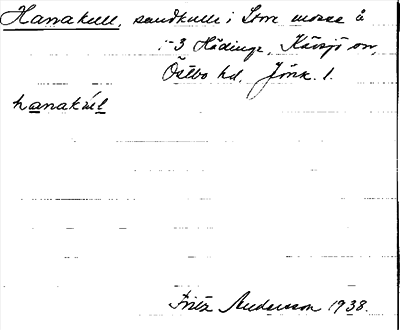 Hanakull, sandkulle i Stora mosse å
1-3 Hädinge, Kävsjö sn,
Östbo hd. Jönk. l.
hanakúl
Fritz Andersson 1938.